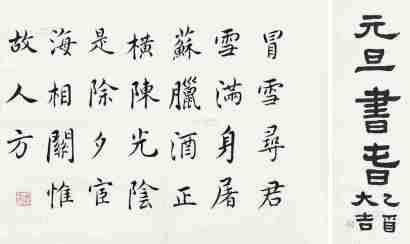 元旦書旾
乙酉
大吉
冒雪尋君
雪滿身屠
蘇臘酒正
橫陳光陰
是除夕宦
海相關惟
故人方